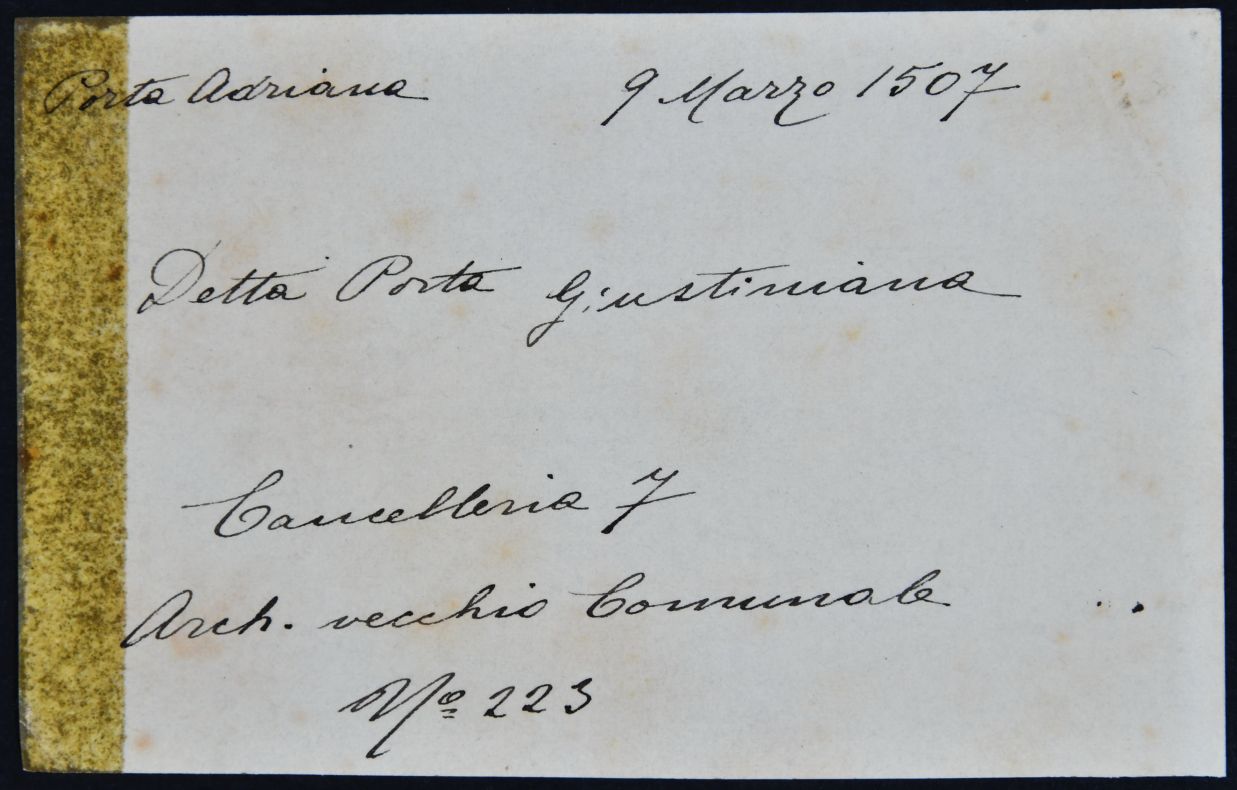 Porta Adriana 9 Marzo 1507
Detta Porta Giustiniana
Cancelleria 7
Arch. vecchio Comunale
Nº 223